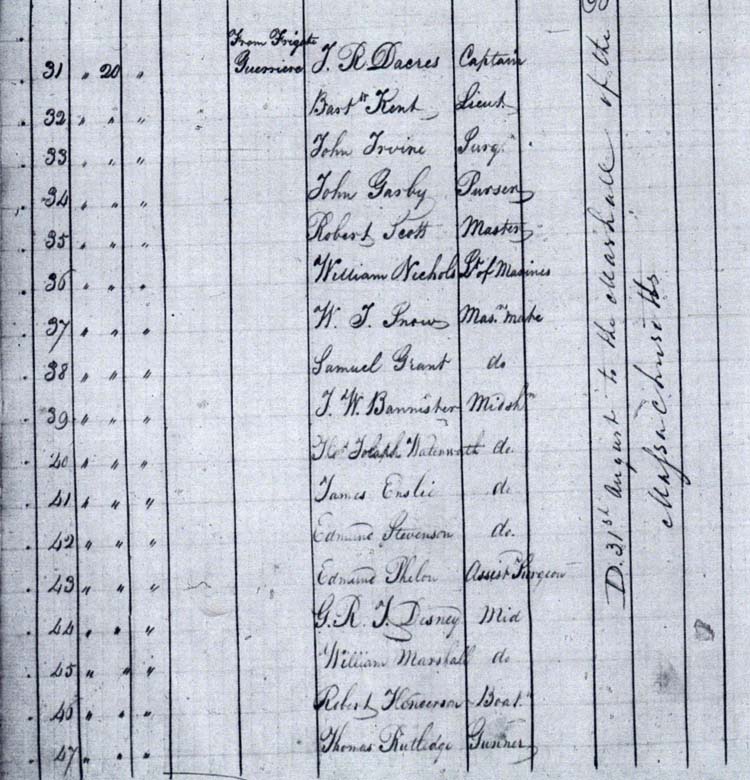 From Frigate
31 " 20 " Guerriere J. R Dacres Captain
32 " " " Bartw Kent Lieut
33 " " " John Irvine Surgn
34 " " " John Garby Purser
35 " " " Robert Scott Master
36 " " " William Nichols Lt of Marines
37 " " " W. J. Snow Masrs mate
38 " " " Samuel Grant do
39 " " " J. W. Bannister Midshn
40 " " " Josaph do
41 " " " James Enslie do
42 " " " Edmund Stevenson do.
43 " " " Edmund Phelon Assist Surgeon
44 " " " G. R. J. Disney Mid
45 " " " William Marshall do
46 " " " Robert Henderson Boatn
47 " " " Thomas Rutledge Gunner
D. 31st August to the Marshall of the
Massachusetts